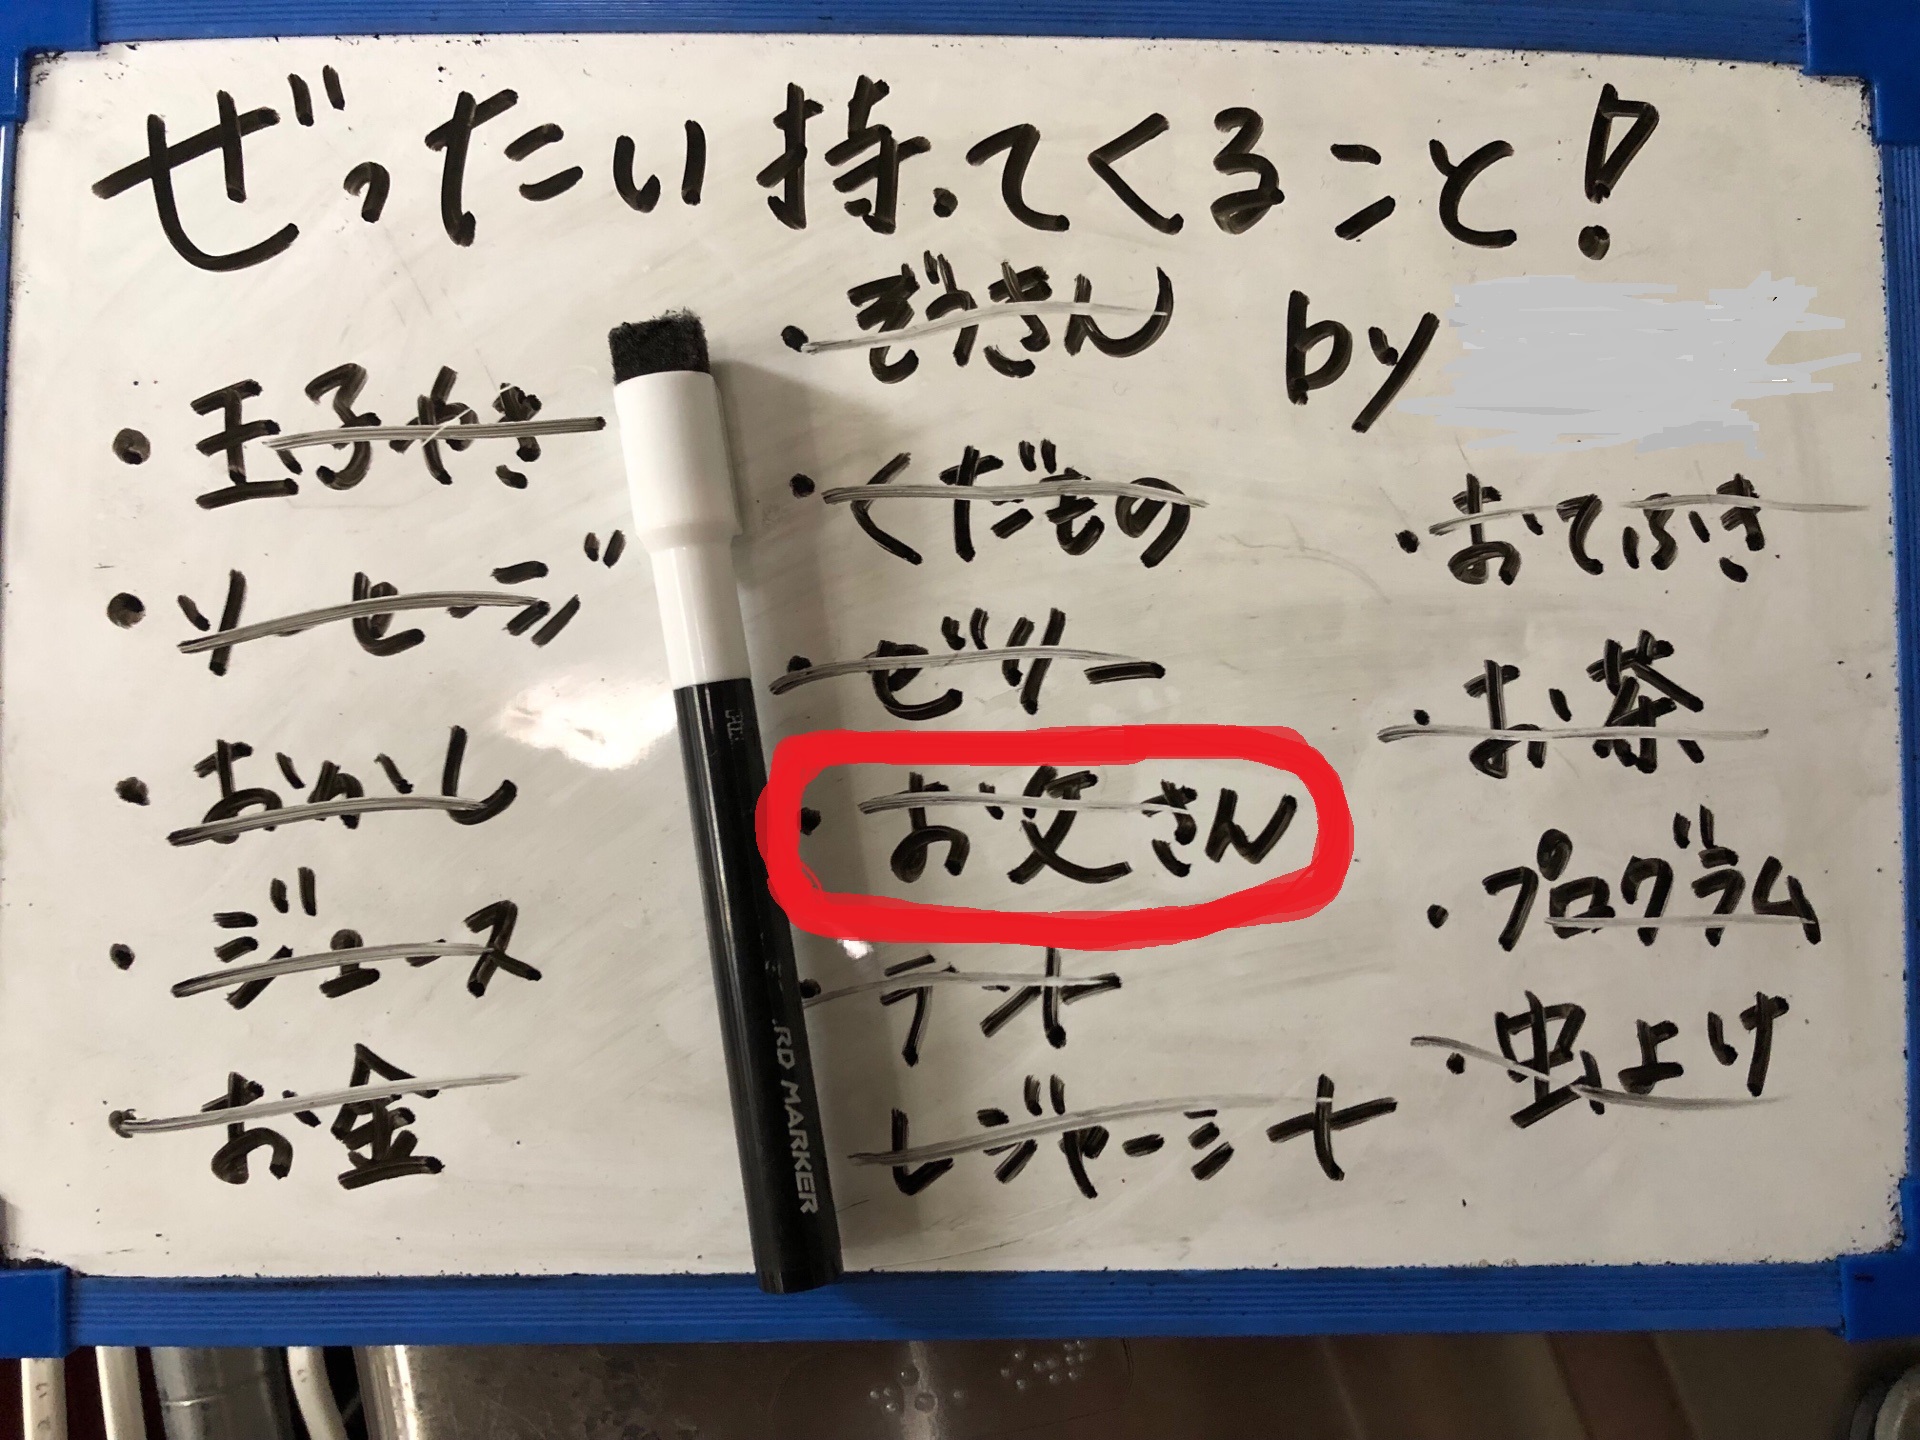 ぜったい持ってくること!
by
・玉子やき
・ソーセージ
・おかし
・ジュース
・お金
・ぞうきん
・くだもの
・ゼリー
・お父さん
・テント
レジャーシート
・おてふき
・お茶
・プログラム
・虫よけ
RD MARKER